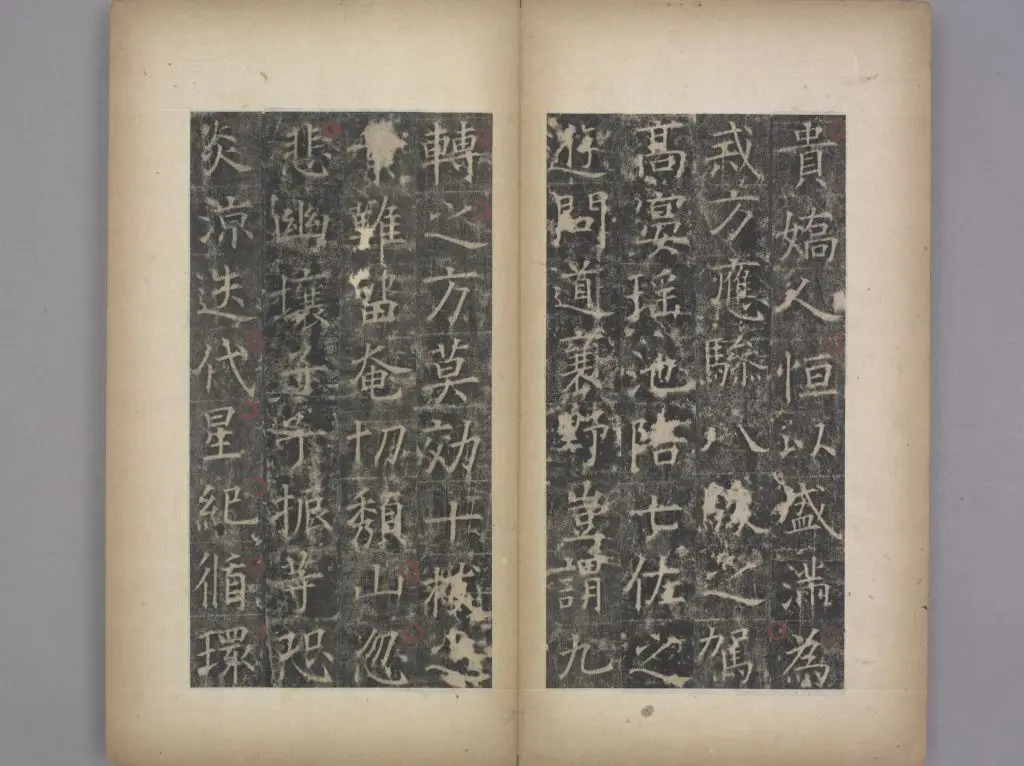 貴嬌人恒以盛滿為
戒方應驂八之駕
高宴瑤池陪七佐之
遊問道襄野豈謂九
轉之方莫効十枝之
難留奄切頹山忽
悲幽壤子振等恐
炎涼迭代星紀循環